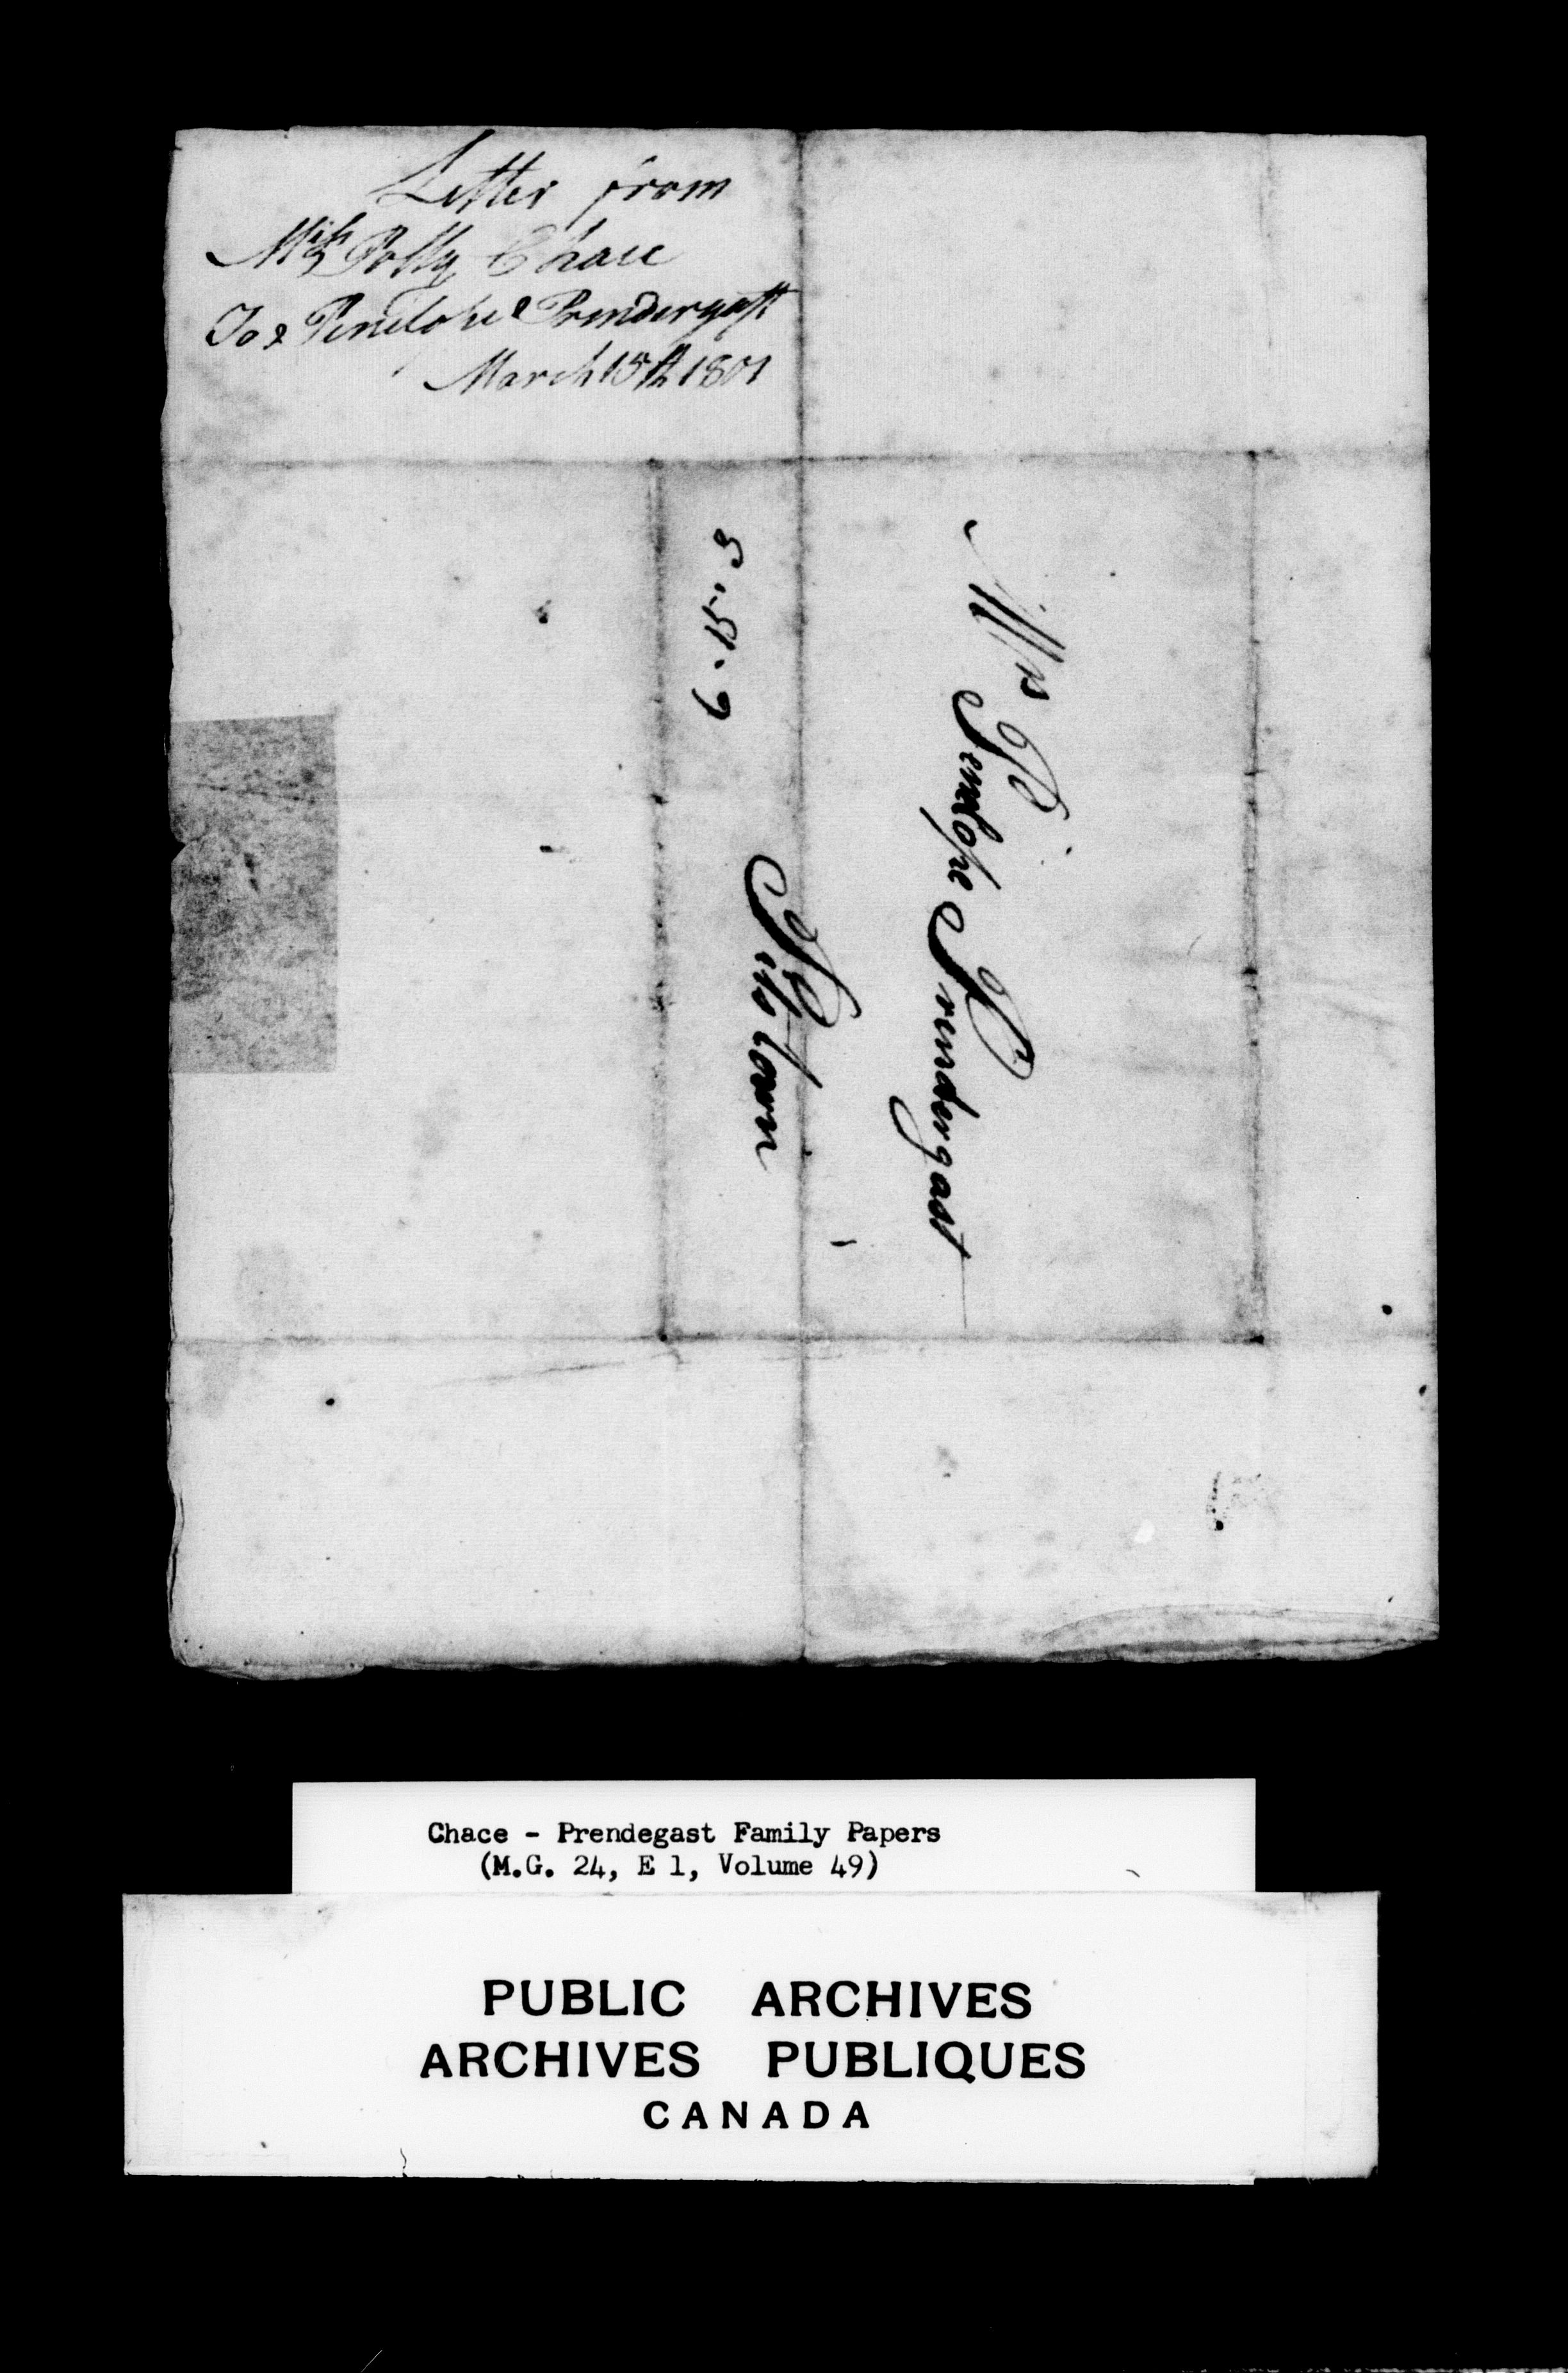 Letter from
Miss Polly Chace
To Penelope Prendergast
March 15th 1801
Mrs Penelope Prendergast
Pitstown
3 . 15 . 6
Chace - Prendegast Family Papers
(M.G. 24, E 1, Volume 49)
PUBLIC ARCHIVES
ARCHIVES PUBLIQUES
CANADA